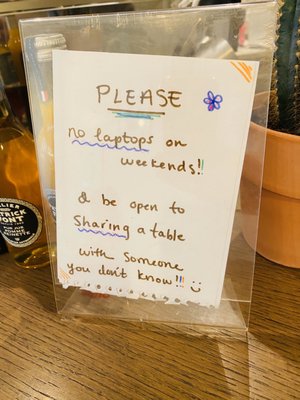 PLEASE
no laptops on
weekends!!
& be open to
Sharing a table
with someone
you don't know!!!